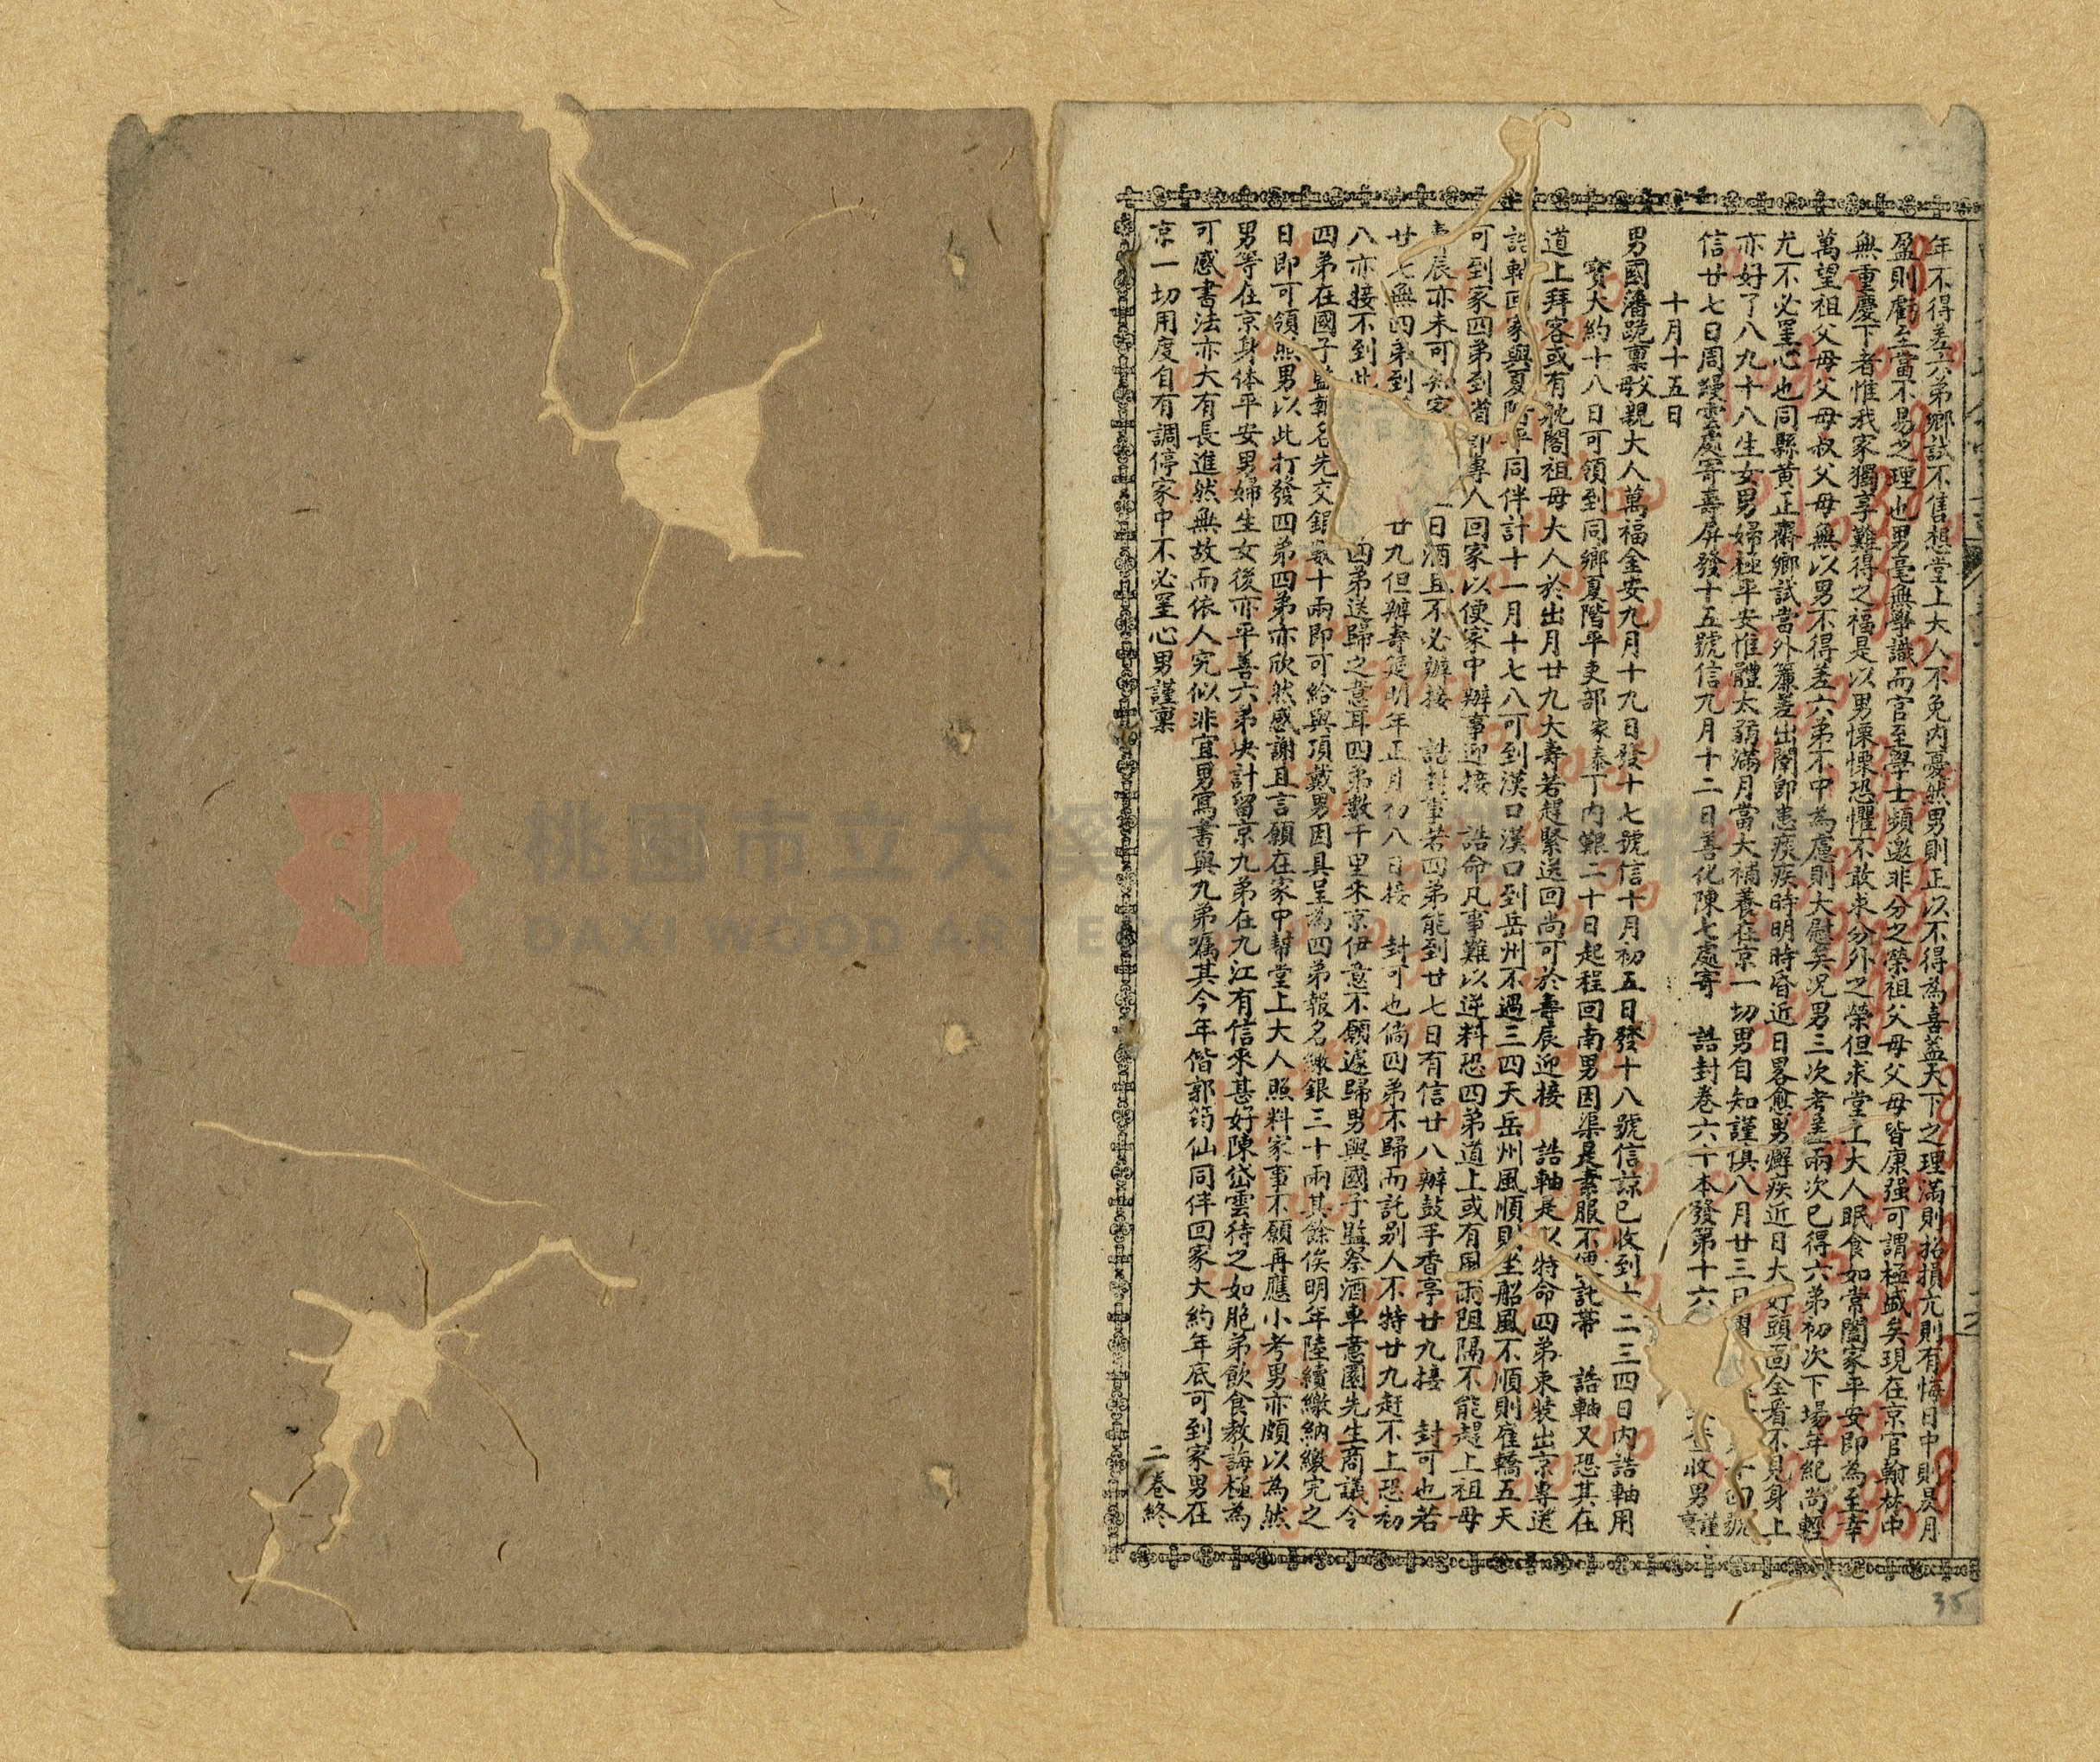 年不得差六弟鄉試不售想堂上大人不免內憂然男則正以不得為喜蓋天下之理滿則招損亢則有悔日中則昃月
盈則虧至當不易之理也男毫無學識而官至學士頻邀非分之榮祖父母父母皆康强可謂極盛矣現在京官翰林中
無重慶下者惟我家獨享難得之福是以男慄慄恐懼不敢求分外之榮但求堂上大人眠食如常闔家平安即為至幸
萬望祖父母父母叔父母無以男不得差六弟不中為慮則大慰矣況男三次考差兩次已得六弟初次下場年紀尚輕
尤不必罣心也同縣黃正齋鄉試當外簾差出闈即患痰疾時明時昏近日畧愈男癬疾近日大好頭面全看不見身上
亦好了八九十八生女男婦極平安惟體太弱滿月當大補養在京一切男自知謹慎八月廿三日摺十四號
信廿七日周縵雲處寄壽屏發十五號信九月十二日善化陳七處寄 誥封卷六十本發第十六收男謹稟
十月十五日
男國藩跪稟父母親大人萬福金安九月十九日發十七號信十月初五日發十八號信諒已收到十二三四日內誥軸用
寶大約十八日可領到同鄉夏階平吏部家泰丁內艱二十日起程回南男因渠是素服不便託帶 誥軸又恐其在
道上拜客或有躭閣祖母大人於出月廿九大壽若趕緊送回尚可於壽辰迎接 誥軸是以特命四弟束裝出京專送
誥軸回家與夏階平同伴計十一月十七八可到漢口漢口到岳州不過三四天岳州風順則坐船風不順則雇轎五天
可到家四弟到省即專人回家以便家中辦事迎接 誥命凡事難以逆料恐四弟道上或有風雨阻隔不能趕上祖母
壽辰亦未可知家日酒且不必辦接 誥封事若四弟能到廿七日有信廿八辦鼓手香亭廿九接 封可也若
廿七無四弟到廿九但辦壽筵明年正月初八日接 封可也倘四弟不歸而託别人不特廿九趕不上恐初
八亦接不到此四弟送歸之意耳四弟數千里來京伊意不願遽歸男與國子監祭酒車意園先生商議令
四弟在國子監報名先交銀數十兩即可給與頂戴男因具呈為四弟報名繳銀三十兩其餘俟明年陸續繳納繳完之
日即可領照男以此打發四弟四弟亦欣然感謝且言願在家中幫堂上大人照料家事不願再應小考男亦頗以為然
男等在京身体平安男婦生女後亦平善六弟决計留京九弟在九江有信來甚好陳岱雲待之如胞弟飲食教誨極為
可感書法亦大有長進然無故而依人究似非宜男寫書與九弟囑其今年偕郭筠仙同伴回家大約年底可到家男在
京一切用度自有調停家中不必罣心男謹稟
二卷終
35
桃園市立大溪木藝生態博物館
DAXI WOOD ART ECOMUSEUM, TAOYUAN